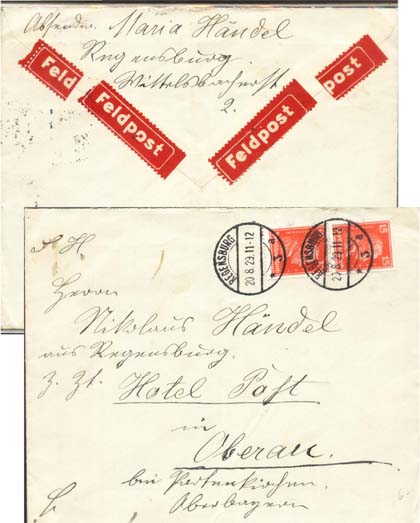 Absender. Maria Händel
Regensburg.
Wittelsbacherst
2.
Feld
Feldpost
Feldpost
post
REGENSBURG
20.8.29.11-12
* 3 a
REGENSBURG
20.8.29.11-12
* 3 a
15
15
Herrn
Nikolaus Händel
aus Regensburg.
z. Zt. Hotel Post
in
Oberau.
bei Partenkirchen,
Oberbayern